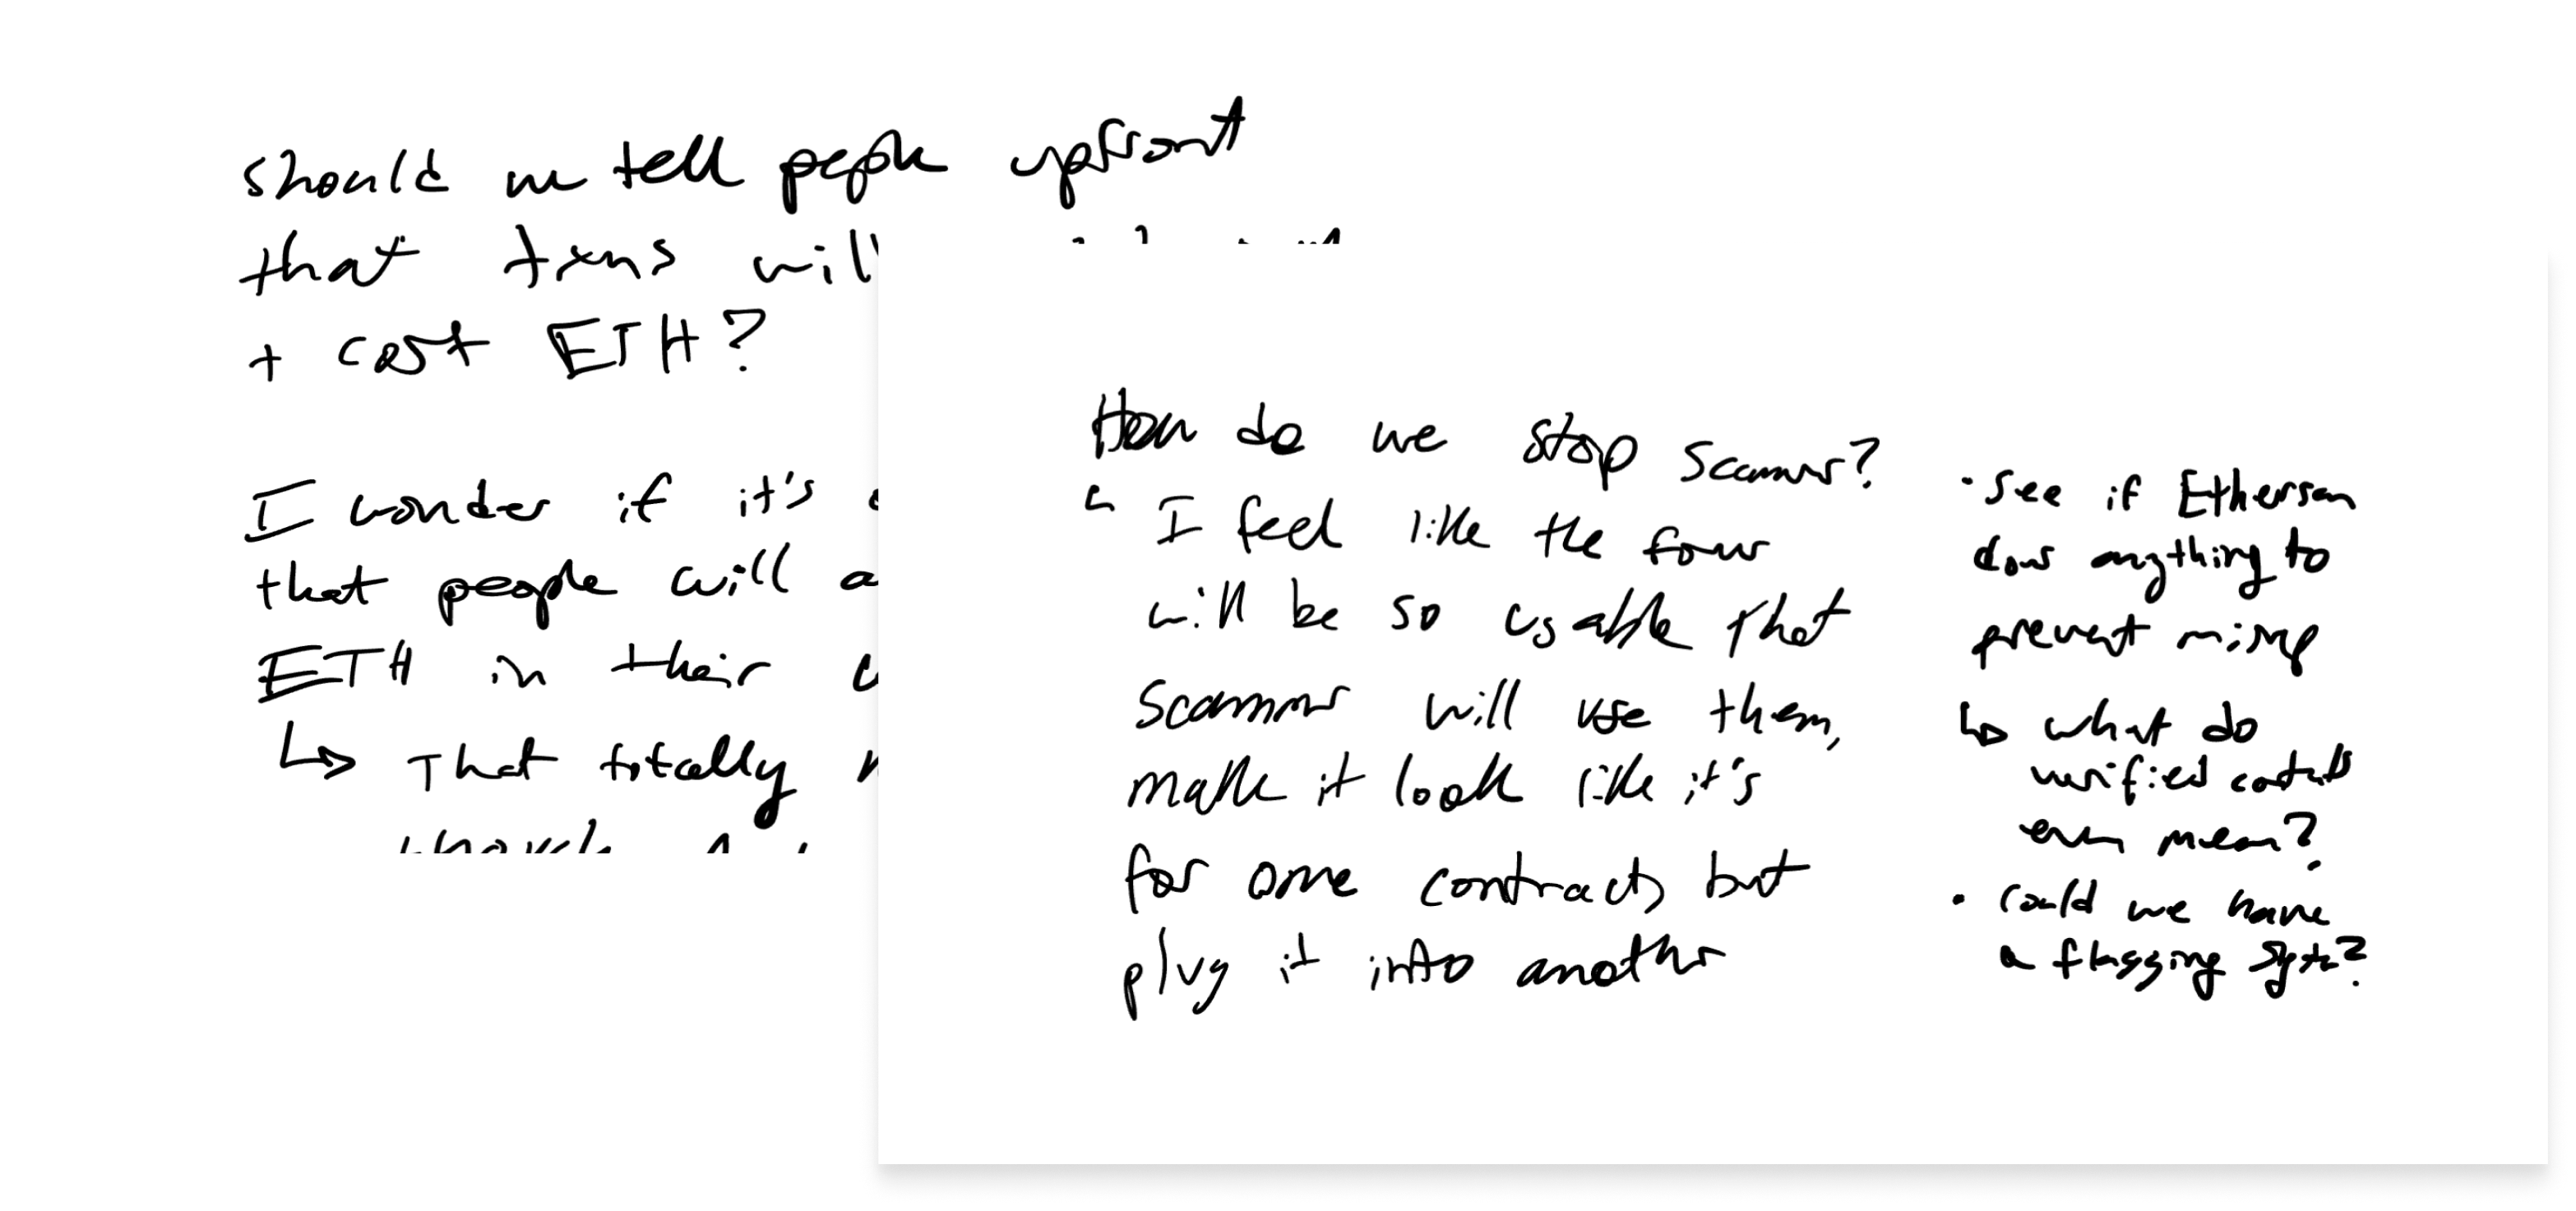 should we tell people upfront
that txns will
+ cost ETH?
I wonder if it's
that people will a
ETH in their
↳ That totally
How do we stop scammers?
↳ I feel like the forms
will be so usable that
scammers will use them,
make it look like it's
for one contract, but
plug it into another
• see if Etherscan
does anything to
prevent misuse
↳ what do
verified contracts
even mean?
• could we have
a flagging system?